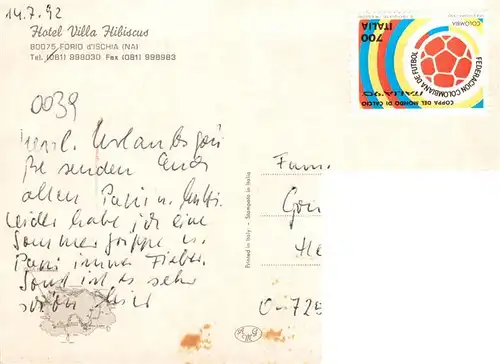 14.7.92
Hotel Villa Hibiscus
80075 FORIO d'ISCHIA (NA)
Tel. (081) 998030 Fax (081) 998983
0039
Herzl. Urlaubsgrü
ße senden Euch
allen Papi u.
Leider habe ich eine
Sommergrippe u.
Papi immer Fieber.
Sonst ist es sehr
schön hier
Printed in Italy - Stampato in Italia
Fam
Her
D-725
700
ITALIA
COLOMBIA
FEDERACION COLOMBIANA DE FUTBOL
COPPA DEL MONDO DI CALCIO
ITALIA '90